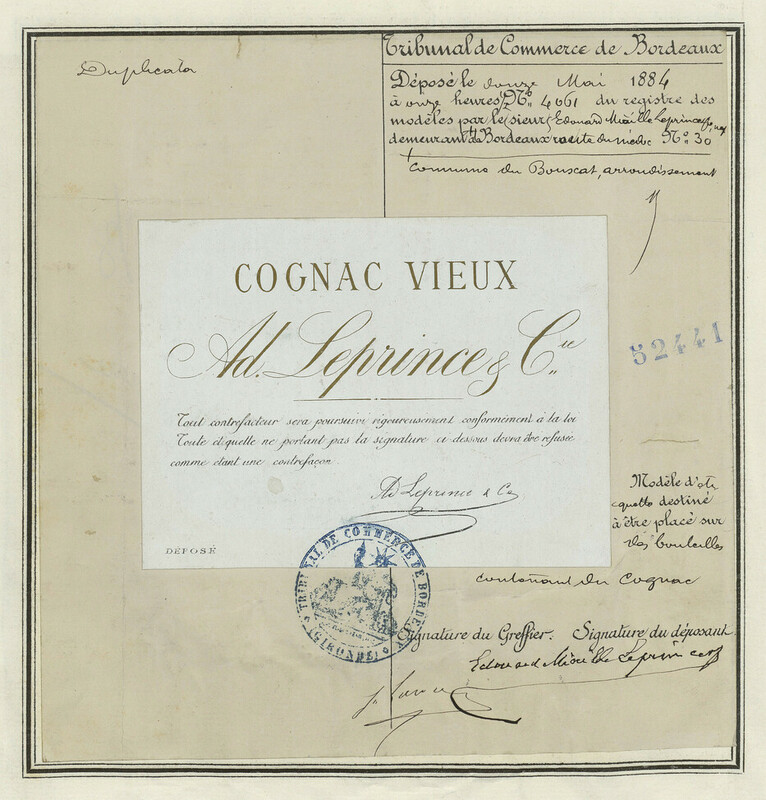 Duplicata
Tribunal de Commerce de Bordeaux
Déposé le douze Mai 1884
à onze heures, No. 4061 du registre des
modèles par le sieur Edouard Leprince
demeurant à Bordeaux route du médoc No. 30
Commune du Bouscat, arrondissement
COGNAC VIEUX
Ad. Leprince & Cie
52441
Tout contrefacteur sera poursuivi rigoureusement conformément à la loi
Toute étiquette ne portant pas la signature ci dessous devra être refusée
comme étant une contrefaçon
Ad Leprince & Co
DÉPOSÉ
Modèle d'éti
quette destiné
à être placé sur
des bouteilles
contenant du Cognac
TRIBUNAL DE COMMERCE DE BORDEAUX
(GIRONDE)
Signature du Greffier. Signature du déposant
Edouard Leprince